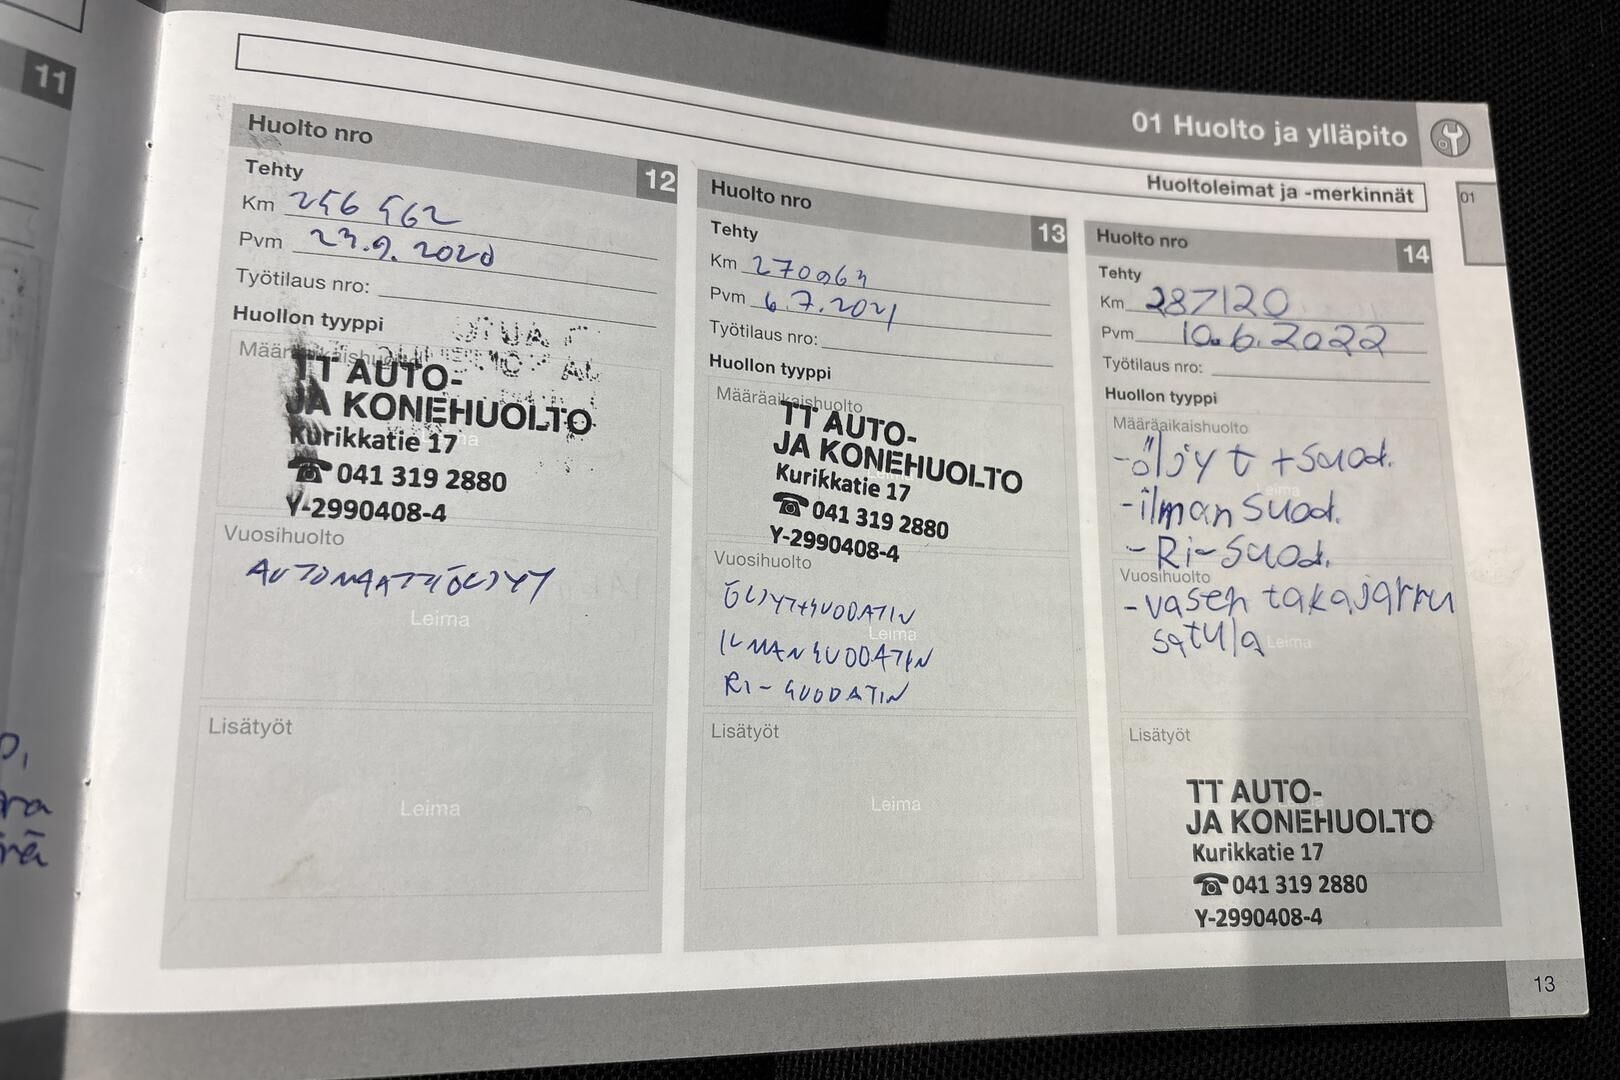 11
01 Huolto ja ylläpito
Huoltoleimat ja -merkinnät
01
Huolto nro
12
Tehty
Km 256 562
Pvm 23.9.2020
Työtilaus nro:
Huollon tyyppi
Määräaikaishuolto
TT AUTO-
JA KONEHUOLTO
Kurikkatie 17
☎ 041 319 2880
Y-2990408-4
Vuosihuolto
AUTOMAATTIÖLJYT
Leima
Lisätyöt
Leima
Huolto nro
13
Tehty
Km 270963
Pvm 6.7.2021
Työtilaus nro:
Huollon tyyppi
Määräaikaishuolto
TT AUTO-
JA KONEHUOLTO
Kurikkatie 17
☎ 041 319 2880
Y-2990408-4
Vuosihuolto
ÖLJYT+SUODATIN
Leima
ILMANSUODATIN
RI-SUODATIN
Lisätyöt
Leima
Huolto nro
14
Tehty
Km 287120
Pvm 10.6.2022
Työtilaus nro:
Huollon tyyppi
Määräaikaishuolto
-öljyt +suod.
Leima
-ilman suod.
-Ri-Suod.
Vuosihuolto
-vasen takajarru
satula
Leima
Lisätyöt
TT AUTO-
JA KONEHUOLTO
Kurikkatie 17
☎ 041 319 2880
Y-2990408-4
13